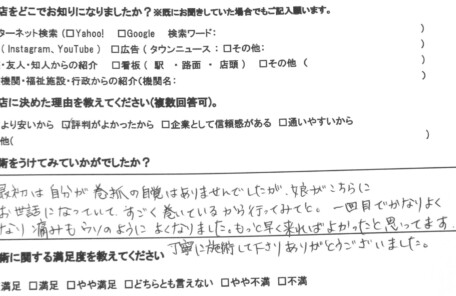 店をどこでお知りになりましたか？※既にお聞きしていた場合でもご記入願います。
ターネット検索（□Yahoo! □Google 検索ワード： ）
（Instagram、YouTube） □広告（タウンニュース：□その他： ）
・友人・知人からの紹介 □看板（ 駅 ・ 路面 ・ 店頭 ） □その他（ ）
機関・福祉施設・行政からの紹介（機関名：
店に決めた理由を教えてください（複数回答可）。
より安いから ☑評判がよかったから □企業として信頼感がある □通いやすいから
他（ ）
術をうけてみていかがでしたか？
最初は自分が巻爪の自覚はありませんでしたが、娘がこちらに
お世話になっていて、すごく巻いているから行ってみてと。一回目でかなりよく
なり痛みもうそのようによくなりました。もっと早く来ればよかったと思ってます。
丁寧に施術して下さりありがとうございました。
術に関する満足度を教えてください
満足 □満足 □やや満足 □どちらとも言えない □やや不満 □不満